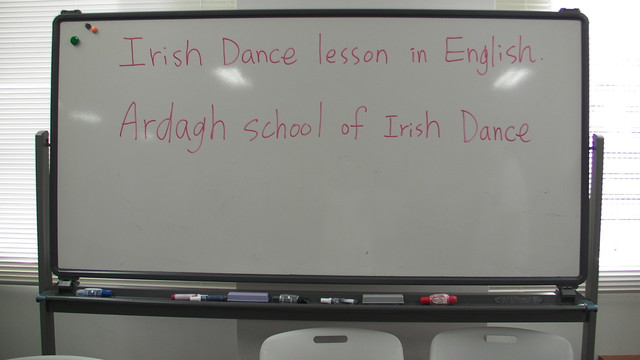 Irish Dance lesson in English.
Ardagh school of Irish Dance